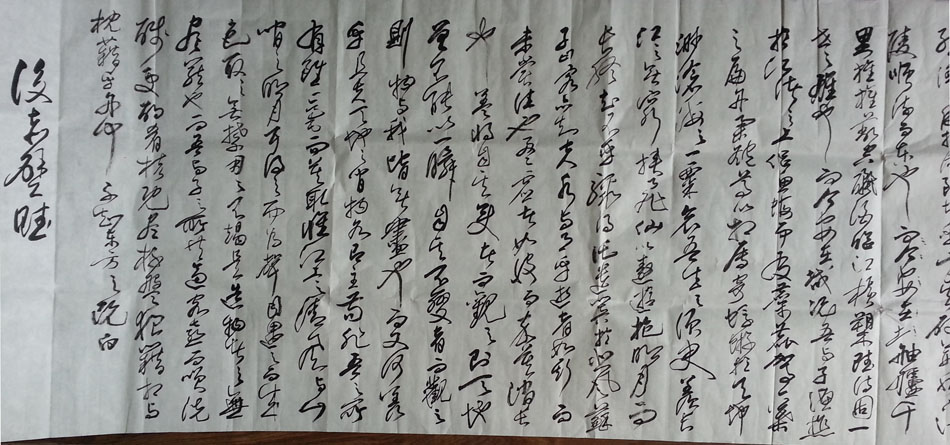 陵順流而東也而今安在舳艫千
里旌旗蔽空釃酒臨江橫槊賦詩固一
世之雄也而今安在哉況吾與子漁樵
於江渚之上侶魚蝦而友麋鹿駕一葉
之扁舟舉匏尊以相屬寄蜉蝣於天地
渺滄海之一粟哀吾生之須臾羨長
江之無窮挾飛仙以遨遊抱明月而
長終知不可乎驟得託遺響於悲風蘇
子曰客亦知夫水與月乎逝者如斯而
未嘗往也盈虛者如彼而卒莫消長
也蓋將自其變者而觀之則天地
曾不能以一瞬自其不變者而觀之
則物與我皆無盡也而又何羨
乎且夫天地之間物各有主苟非吾之所
有雖一毫而莫取惟江上之清風與山
間之明月耳得之而為聲目遇之而成
色取之無禁用之不竭是造物者之無
盡藏也而吾與子之所共適客喜而笑洗
盞更酌肴核既盡杯盤狼籍相與
枕藉乎舟中不知東方之既白
後赤壁賦